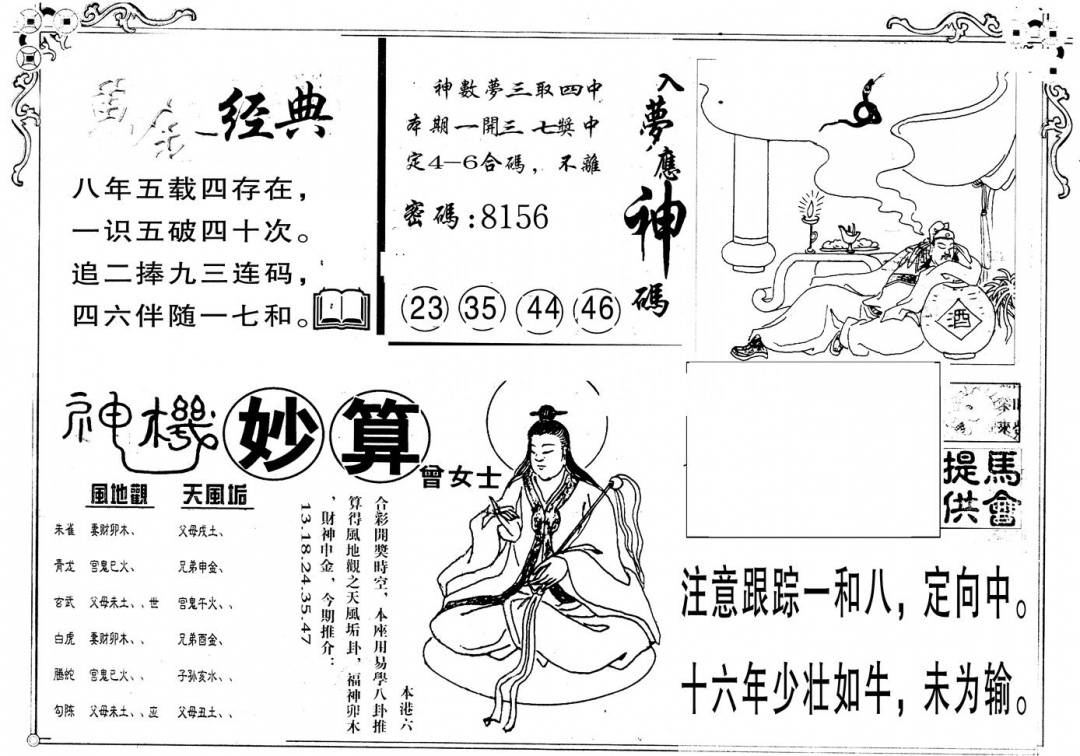 经典
八年五载四存在，
一识五破四十次。
追二捧九三连码，
四六伴随一七和。
神數夢三取四中
本期一開三七獎中
定4—6合碼，不離
密碼:8156
23 35 44 46
入夢應神碼
酒
神機妙算
曾女士
風地觀 天風垢
朱雀 妻财卯木、 父母戌土、
青龙 官鬼巳火、 兄弟申金、
玄武 父母未土、、世 官鬼午火、、
白虎 妻财卯木、、 兄弟酉金、
腾蛇 官鬼巳火、、 子孙亥水、、
勾陈 父母未土、、应 父母丑土、、
本港六
合彩開獎時空，本座用易學八卦推
算得風地觀之天風垢卦，福神卯木
，財神申金，今期推介：
13.18.24.35.47
馬會
提供
注意跟踪一和八，定向中。
十六年少壮如牛，未为输。